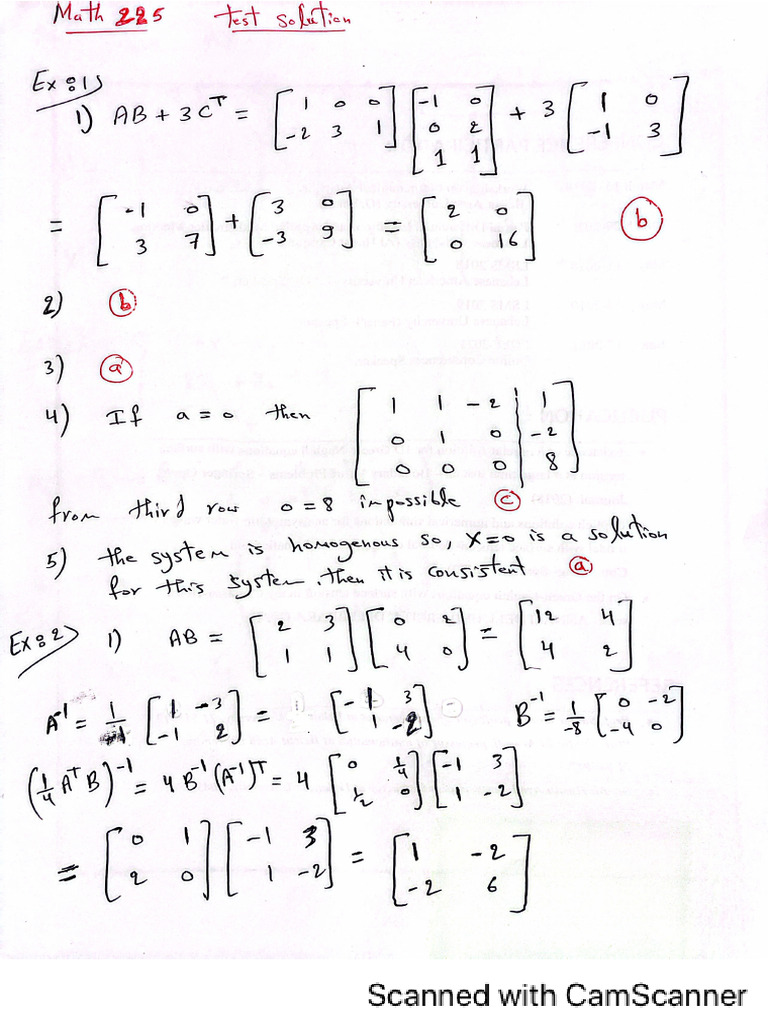 Math 225 test solution
Ex:1)
1) AB + 3C^T = [1 0 0; -2 3 1] [-1 0; 0 2; 1 1] + 3 [1 0; -1 3]
= [-1 0; 3 7] + [3 0; -3 9] = [2 0; 0 16] (b)
2) (b)
3) (a)
4) If a = 0 then [1 1 -2 | 1; 0 1 0 | -2; 0 0 0 | 8]
from third row 0 = 8 impossible (c)
5) the system is homogenous so, X=0 is a solution
for this system, then it is consistent (a)
Ex:2) 1) AB = [2 3; 1 1] [0 2; 4 0] = [12 4; 4 2]
A^-1 = 1/-1 [1 -3; -1 2] = [-1 3; 1 -2] B^-1 = 1/-8 [0 -2; -4 0]
(1/4 A^T B)^-1 = 4 B^-1 (A^-1)^T = 4 [0 1/4; 1/2 0] [-1 3; 1 -2]
= [0 1; 2 0] [-1 3; 1 -2] = [1 -2; -2 6]
Scanned with CamScanner